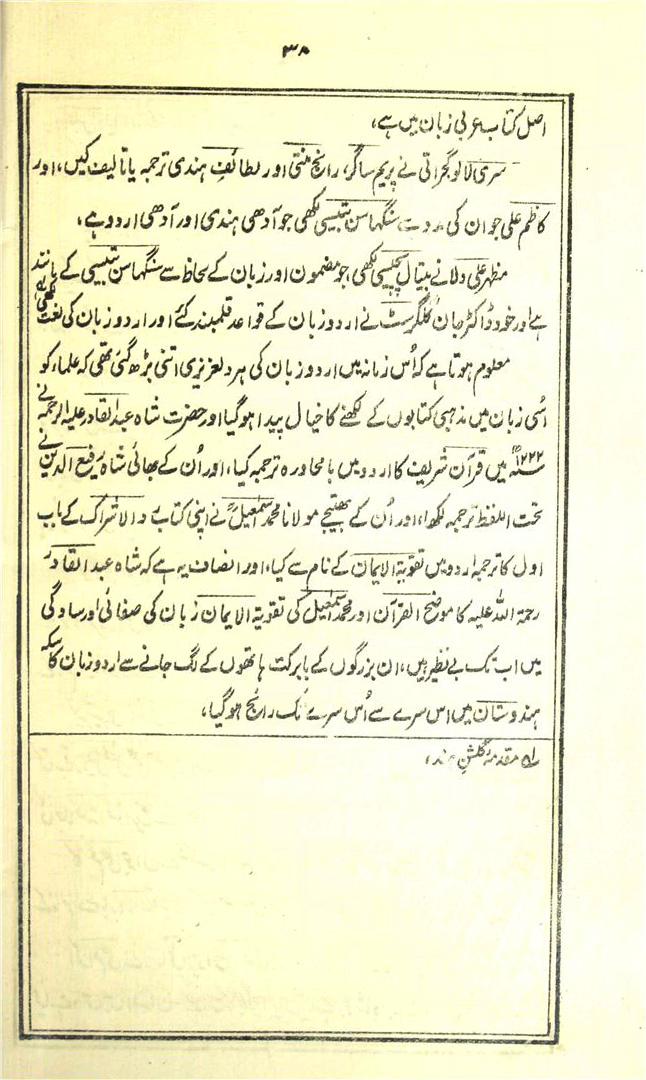 ۳۸
اصل کتاب عربی زبان میں ہے،
سری للالو گجراتی نے پریم ساگر، راج نیتی اور لطائف ہندی ترجمہ یا تالیف کیں، اور
کاظم علی جوان کی مدد سے سنگھاسن بتیسی لکھی جو آدھی ہندی اور آدھی اردو ہے،
مظہر علی ولا نے بیتال پچیسی لکھی، جو مضمون اور زبان کے لحاظ سے سنگھاسن بتیسی کے مانند
ہے اور خود ڈاکٹر جان گلگرسٹ نے اردو زبان کے قواعد قلمبند کئے اور اردو زبان کی لغت لکھی،
معلوم ہوتا ہے کہ اُس زمانہ میں اردو زبان کی ہر دلعزیزی اتنی بڑھ گئی تھی کہ علماء کو
اُسی زبان میں مذہبی کتابوں کے لکھنے کا خیال پیدا ہو گیا اور حضرت شاہ عبدالقادر علیہ الرحمہ نے
۱۲۲۲ھ میں قرآن شریف کا اردو میں با محاورہ ترجمہ کیا، اور اُن کے بھائی شاہ رفیع الدین نے
تحت اللفظ ترجمہ لکھا، اور اُن کے بھتیجے مولانا محمد اسمٰعیلؒ نے اپنی کتاب رد الاشراک کے باب
اول کا ترجمہ اردو میں تقویۃ الایمان کے نام سے کیا، اور انصاف یہ ہے کہ شاہ عبد القادر
رحمۃ اللہ علیہ کا موضح القرآن اور محمد اسمٰعیل کی تقویۃ الایمان زبان کی صفائی اور سادگی
میں اب تک بے نظیر ہیں، ان بزرگوں کے بابرکت ہاتھوں کے لگ جانے سے اردو زبان کا سکہ
ہندوستان میں اس سرے سے اُس سرے تک رائج ہو گیا،
لہ مقدمہ گلشن ہند،